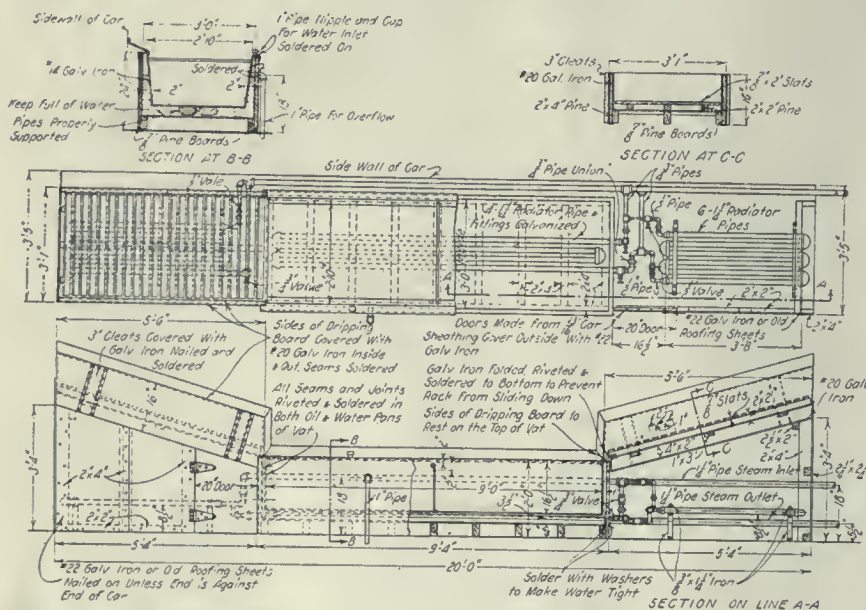 Sidewall of Car
3'-0"
2'10"
1" Pipe Nipple and Cap
For Water Inlet
Soldered On
Galv Iron
Soldered
2"
2"
Keep Full of Water
Pipes Properly
Supported
1" Pipe For Overflow
7/8" Pine Boards
SECTION AT B-B
3" Cleats
3'1"
#20 Gal. Iron
7/8" x 2" Slats
16"
2"x 4" Pine
2"x 2" Pine
7/8" Pine Boards
SECTION AT C-C
Side Wall of Car
Pipe Union
Pipes
Vale
Pipe
Radiator Pipe &
Fittings Galvanized
6-1¼" Radiator
Pipes
3'5"
3'1"
2'-10"
3'-0"
Valve
Pipes
Valve
2"x 2"
A
3'5"
5'-6"
Sides of Dripping
Board Covered With
#20 Galv Iron Inside
& Out, Seams Soldered
Doors Made From 13/16" Car
Sheathing Cover Outside With #22
Galv Iron
20" Door
16½"
3'-8"
#22 Galv Iron or Old
Roofing Sheets
2"x 4"
3" Cleats Covered With
Galv Iron Nailed and
Soldered
All Seams and Joints
Riveted & Soldered in
Both Oil & Water Pans
of Vat
Galv Iron Folded, Riveted &
Soldered to Bottom to Prevent
Rack From Sliding Down
Sides of Dripping Board to
Rest on the Top of Vat
5'-6"
#20 Galv
Iron
Slats
C
C
1"x 3"
2"x 4"
3'-4"
2"x 4"
20" Door
2"x 2"
B
B
1" Pipe
9'-0"
2'-0"
Valve
1¼" Pipe Steam Inlet
1¼" Pipe Steam Outlet
3'-4"
18"
5'-4"
9'-4"
5'-4"
20'-0"
#22 Galv Iron or Old Roofing Sheets
Nailed on Unless End is Against
End of Car
Solder With Washers
to Make Water Tight
Iron
SECTION ON LINE A-A